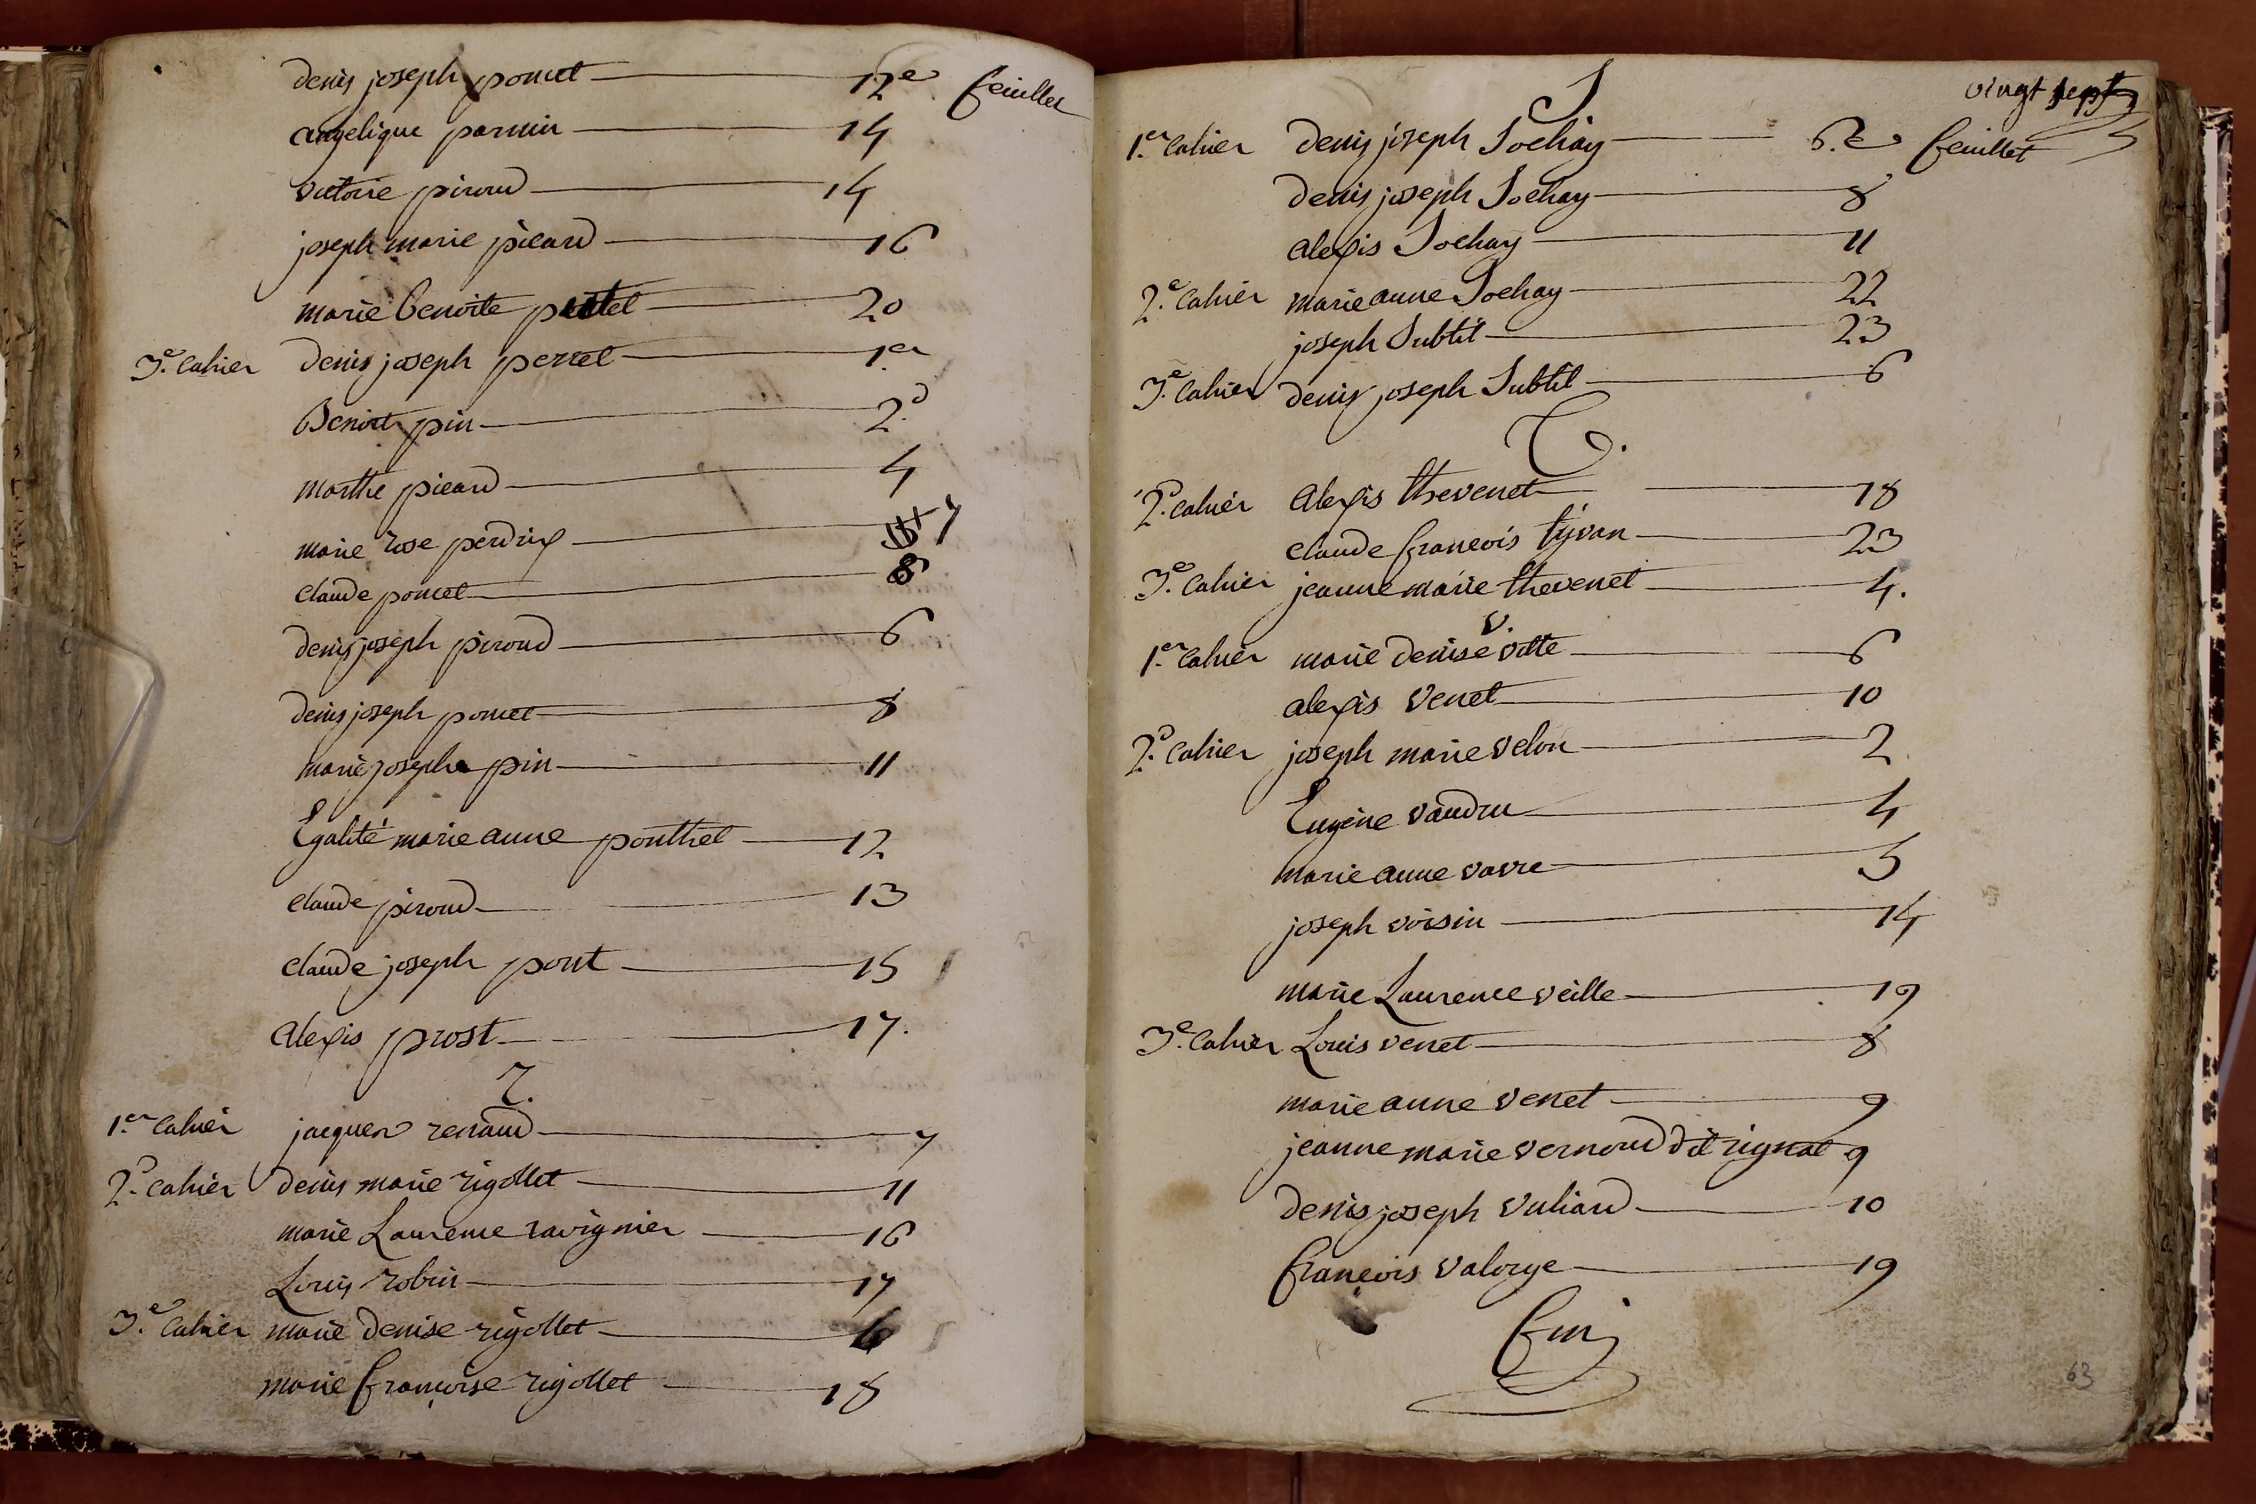 denis joseph poncet 12e feuillet
angelique parmin 14
victoire piroud 14
joseph marie picard 16
marie benoite 20
3e cahier denis joseph perret 1er
Benoit pin 2d
marthe picard 4
marie rose perdrix
claude poncet
denis joseph piroud 6
denis joseph poncet 8
marie josephe pin 11
Egalité marie anne ponthet 12
claude piroud 13
claude joseph pont 15
alexis prost 17.
r.
1er cahier jacques renaud 7
2d cahier denis marie rigollet 11
marie Laurence ravignier 16
Louis robin 17
3e cahier marie denise rigollet
marie françoise rigollet 18
vingt sept
S
1er cahier denis joseph Sochay 6.e feuillet
denis joseph Sochay 8
alexis Sochay 11
2e cahier marie anne Sochay 22
joseph Subtil 23
3e cahier denis joseph Subtil 6
T.
2d cahier alexis thevenet 18
claude françois tyvan 23
3e cahier jeanne marie thevenet 4.
v.
1er cahier marie denise vitte 6
alexis venet 10
2d cahier joseph marie velon 2
Eugene vaudru 4
marie anne vavre 5
joseph voisin 14
marie Laurence veille 19
3e cahier Louis venet 8
marie anne venet 9
jeanne marie vernoud dit rignat 9
denis joseph vuliard 10
françois valorge 19
fin
63